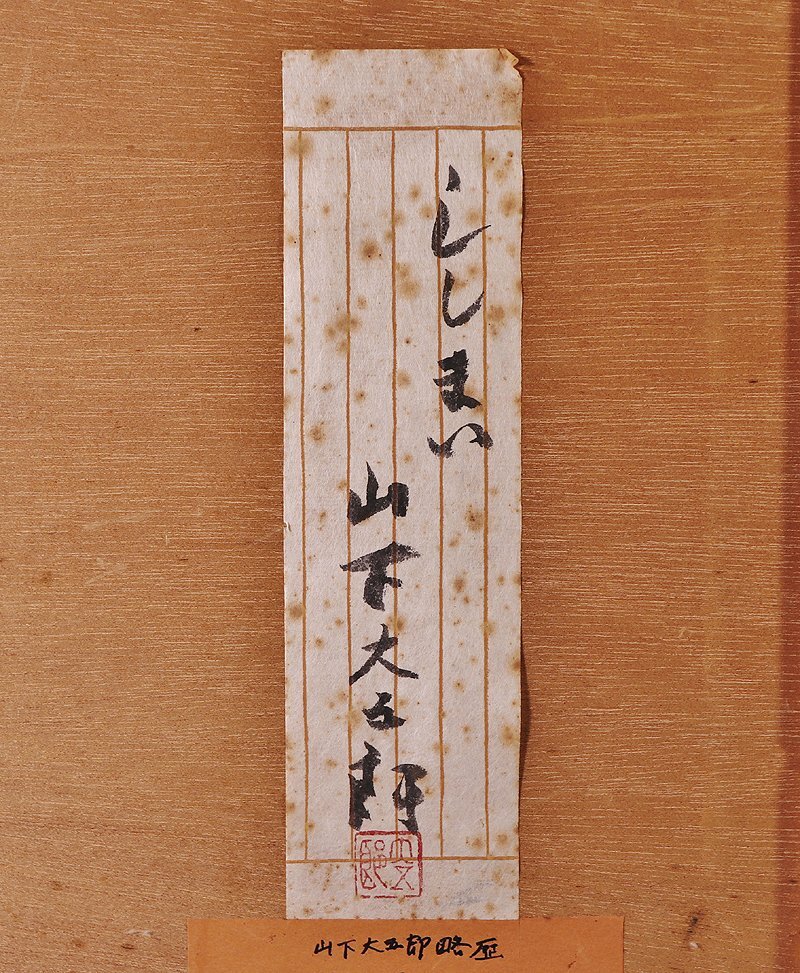 ししまい
山下大五郎
山下大五郎略歴